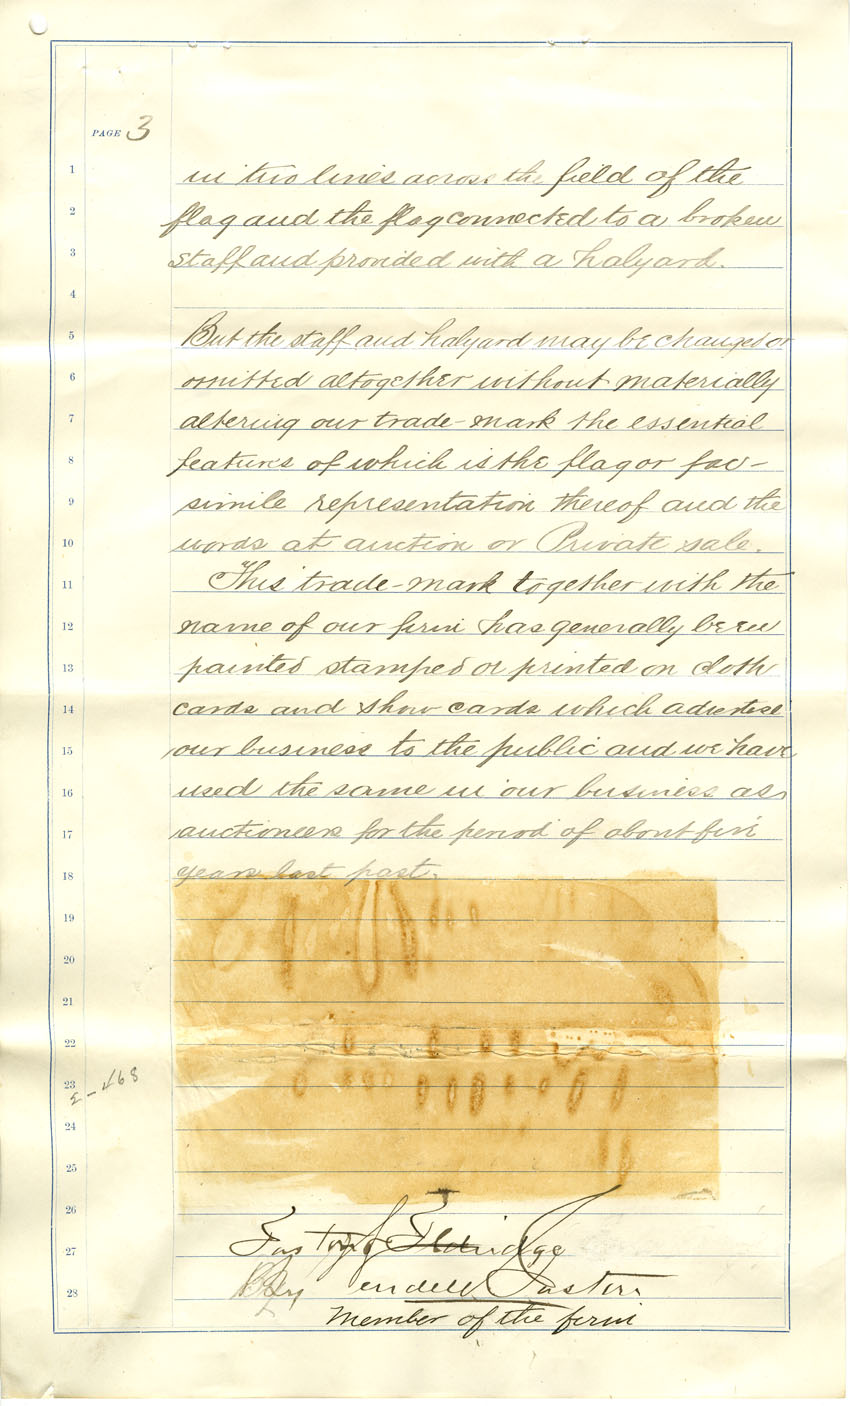 PAGE 3
1 in two lines across the field of the
2 flag and the flag connected to a broken
3 staff and provided with a halyard.
4
5 But the staff and halyard may be changed or
6 omitted altogether without materially
7 altering our trade-mark the essential
8 features of which is the flag or fac-
9 simile representation thereof and the
10 words at auction or Private sale.
11 This trade-mark together with the
12 name of our firm has generally been
13 painted stamped or printed on cloth
14 cards and show cards which advertise
15 our business to the public and we have
16 used the same in our business as
17 auctioneers for the period of about five
18 years last past.
19
20
21
22
23
24
25
26
27 Eldridge
28 By
Member of the firm